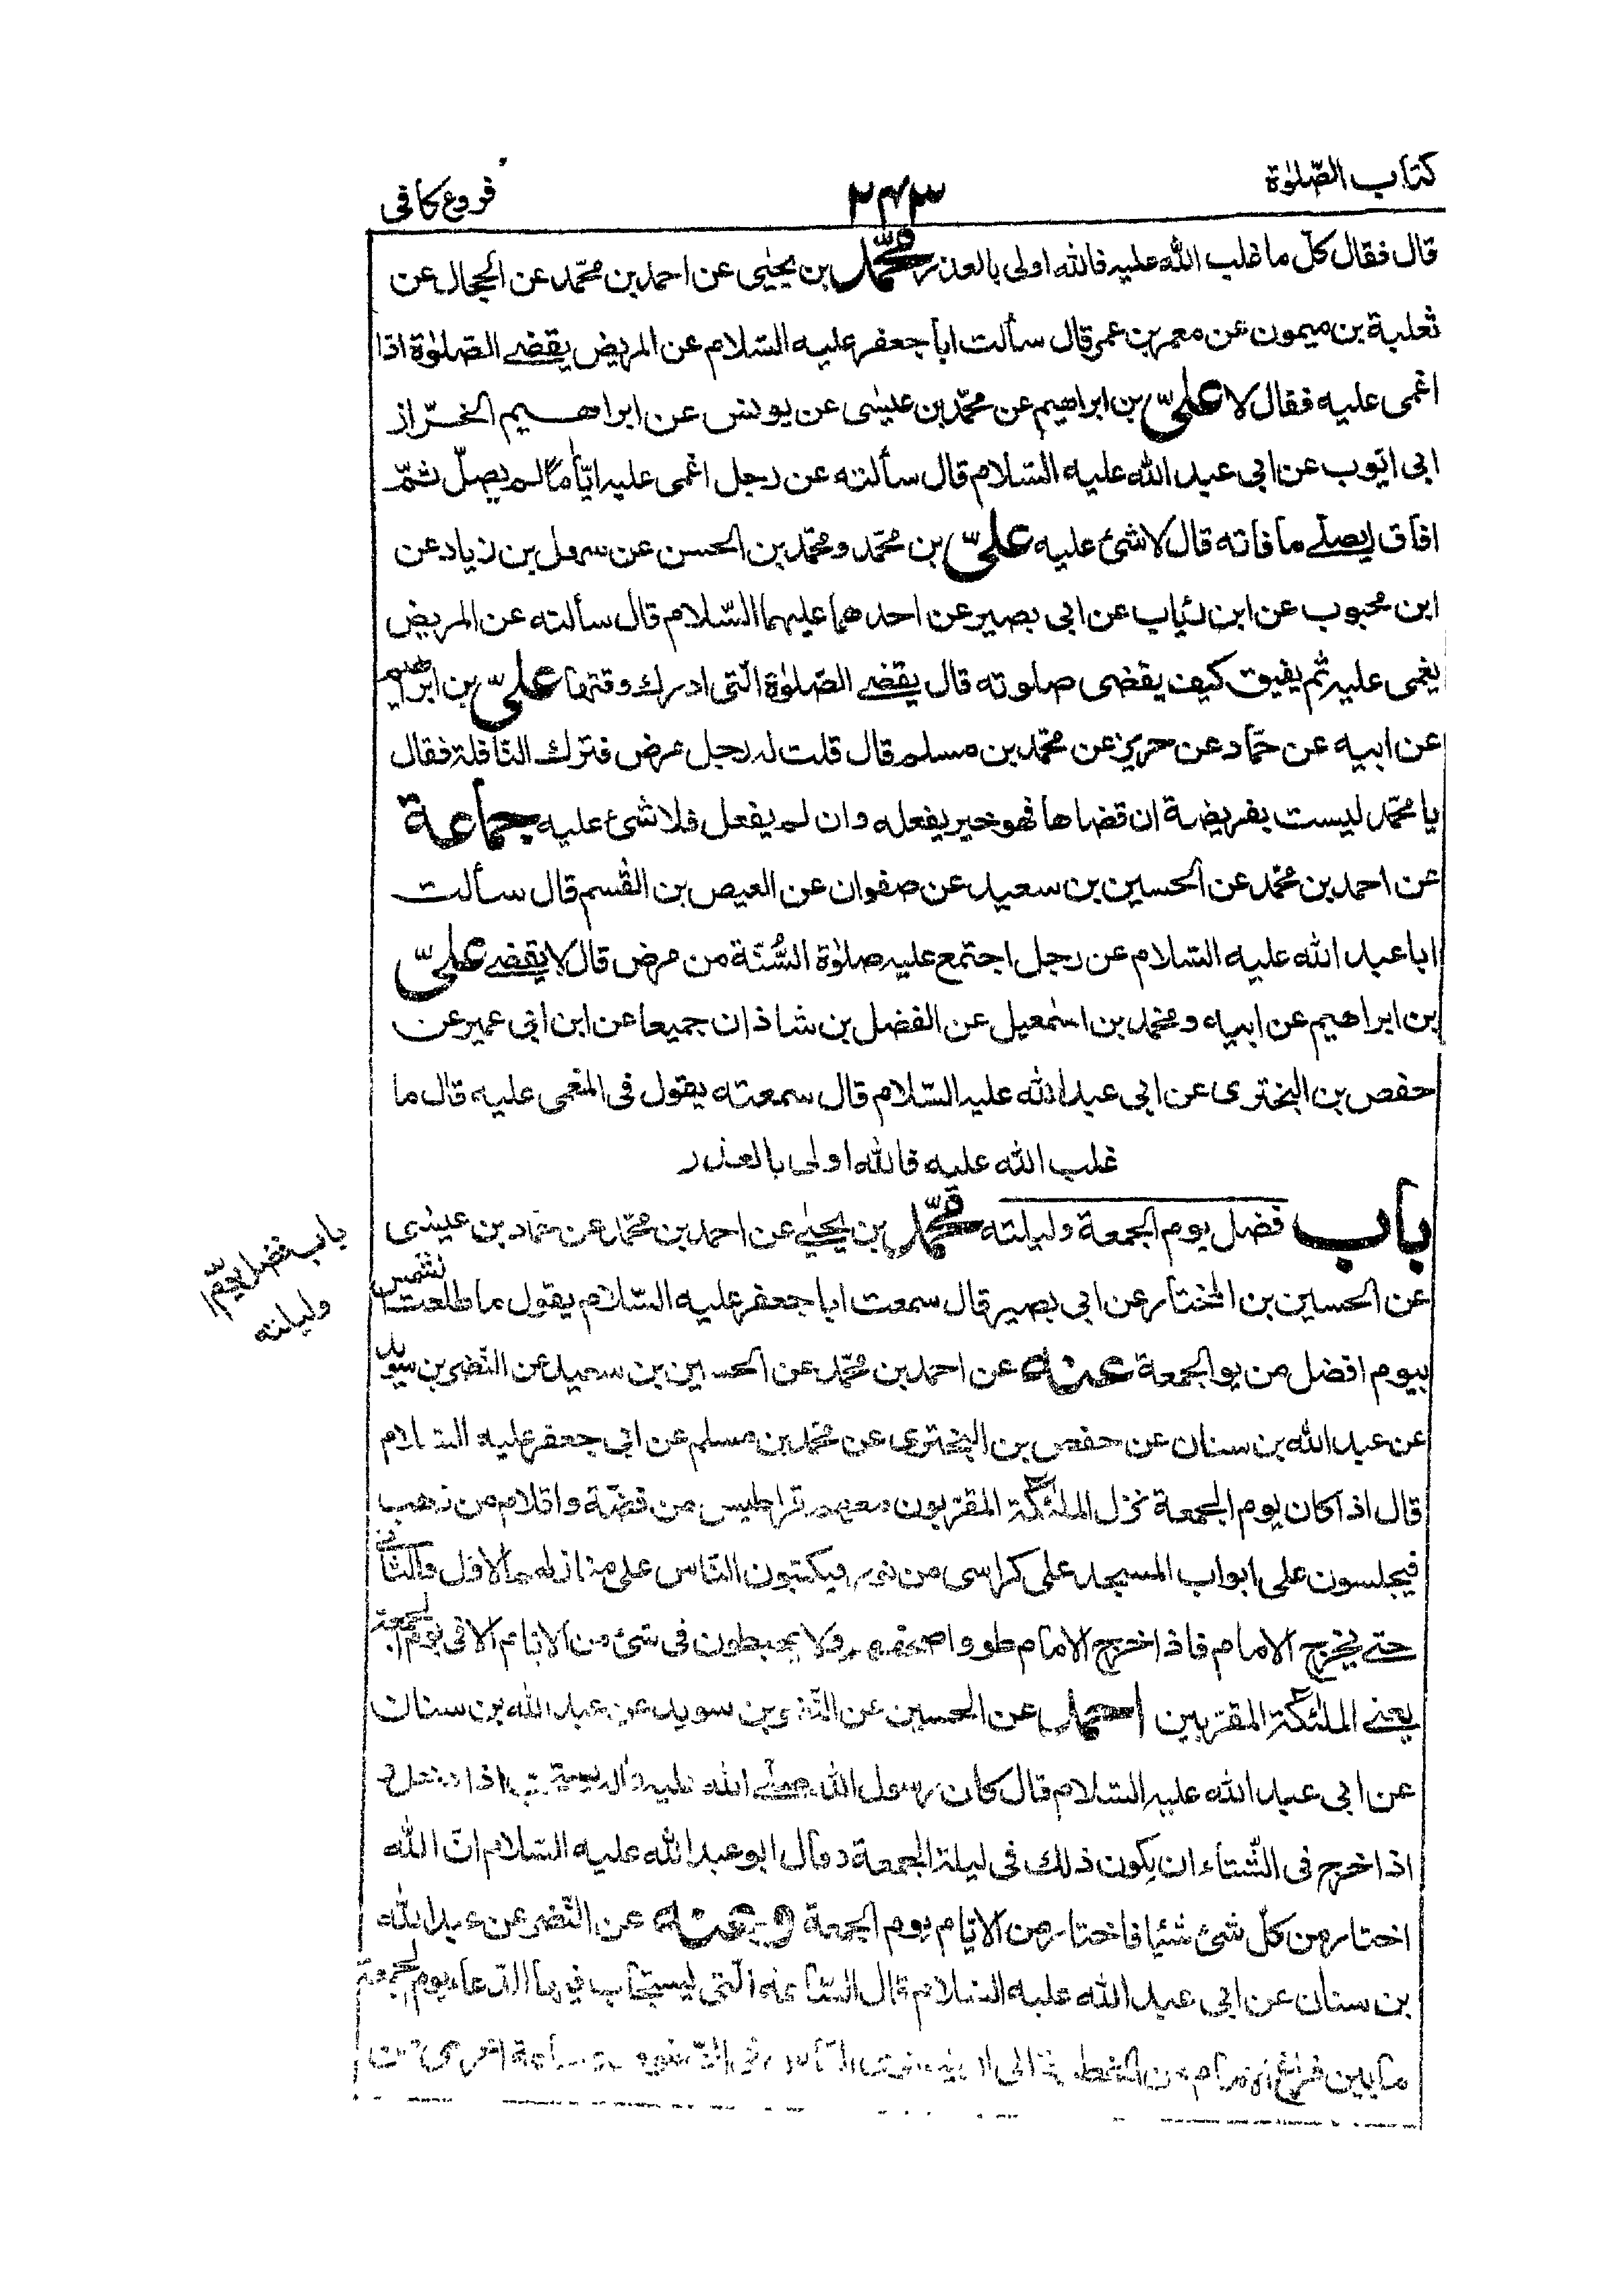 كتاب الصّلوٰة
٢٤٣
فروع كافى
قال فقال كلّ ما غلب الله عليه فالله اولى بالعذر محمّد بن يحيٰى عن احمد بن محمّد عن الحجال عن
ثعلبة بن ميمون عن معمر بن عمر قال سألت ابا جعفر عليه السّلام عن المريض يقضے الصّلوٰة اذا
اغمى عليه فقال لا علىّ بن ابراهيم عن محمّد بن عيسٰى عن يونس عن ابراهيم الخرّاز
ابى ايّوب عن ابى عبد الله عليه السّلام قال سألته عن رجل اغمى عليه ايّاماً لم يصلّ ثمّ
افاق ايصلّے ما فاته قال لا شئ عليه علىّ بن محمّد ومحمّد بن الحسن عن سهل بن زياد عن
ابن محبوب عن ابن رئاب عن ابى بصير عن احدهما عليهما السّلام قال سألته عن المريض
يغمى عليه ثم يفيق كيف يقضى صلوته قال يقضے الصّلوٰة الّتى ادرك وقتها علىّ بن ابراهيم
عن ابيه عن حمّاد عن حريز عن محمّد بن مسلم قال قلت له رجل مرض فترك النّافلة فقال
يا محمّد ليست بفريضة ان قضاها فهو خير يفعله وان لم يفعل فلا شئ عليه جماعة
عن احمد بن محمّد عن الحسين بن سعيد عن صفوان عن العيص بن القٰسم قال سألت
ابا عبد الله عليه السّلام عن رجل اجتمع عليه صلوٰة السُّنّة من مرض قال لا يقضے علىّ
بن ابراهيم عن ابيه ومحمّد بن اسمٰعيل عن الفضل بن شاذان جميعا عن ابن ابى عمير عن
حفص بن البخترى عن ابى عبد الله عليه السّلام قال سمعته يقول فى المغمى عليه قال ما
غلب الله عليه فالله اولى بالعذر
باب فضل يوم الجمعة وليلته محمّد بن يحيٰے عن احمد بن محمّد عن حمّاد بن عيسٰى
باب فضل يوم
وليلته
عن الحسين بن المختار عن ابى بصير قال سمعت ابا جعفر عليه السّلام يقول ما طلعت الشمس
بيوم افضل من يوم الجمعة عنه عن احمد بن محمّد عن الحسين بن سعيد عن النّضر بن سويد
عن عبد الله بن سنان عن حفص بن البخترى عن محمّد بن مسلم عن ابى جعفر عليه السّلام
قال اذا كان يوم الجمعة نزل الملٰئكة المقرّبون معهم قراطيس من فضّة واقلام من ذهب
فيجلسون على ابواب المسجد على كراسى من نور فيكتبون النّاس على منازلهم الاوّل والثّانى
حتے يخرج الامام فاذا خرج الامام طووا صحفهم ولا يهبطون فى شئ من الايّام الا فى يوم الجمعة
يعنے الملٰئكة المقرّبين احمد عن الحسين عن النّضر بن سويد عن عبد الله بن سنان
عن ابى عبد الله عليه السّلام قال كان رسول الله صلّے الله عليه وآله يستحبّ اذا دخل و
اذا خرج فى الشّتاء ان يكون ذلك فى ليلة الجمعة وقال ابو عبد الله عليه السّلام انّ الله
اختار من كلّ شئ شيئا فاختار من الايّام يوم الجمعة وعنه عن النّضر عن عبد الله
بن سنان عن ابى عبد الله عليه السّلام قال السّاعة الّتى يستجاب فيها الدّعاء يوم الجمعة
ما بين فراغ الامام من الخطبة الى ان